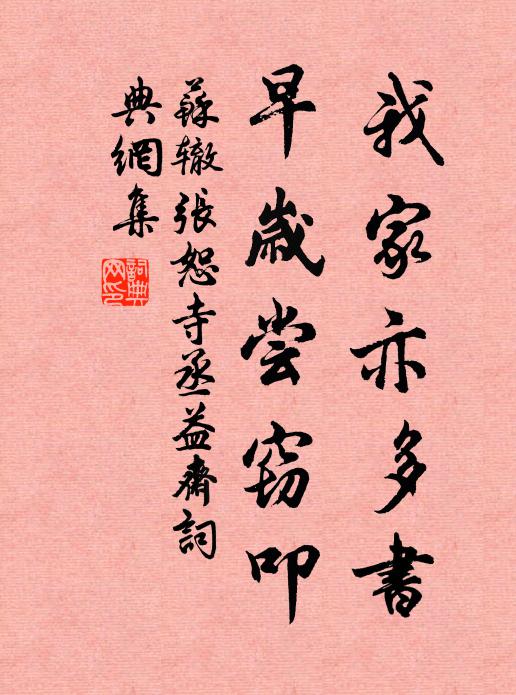 我家亦多書
早歲尝窃叩
蘇辙張恕寺丞益齋詞
典網集
詞典网印